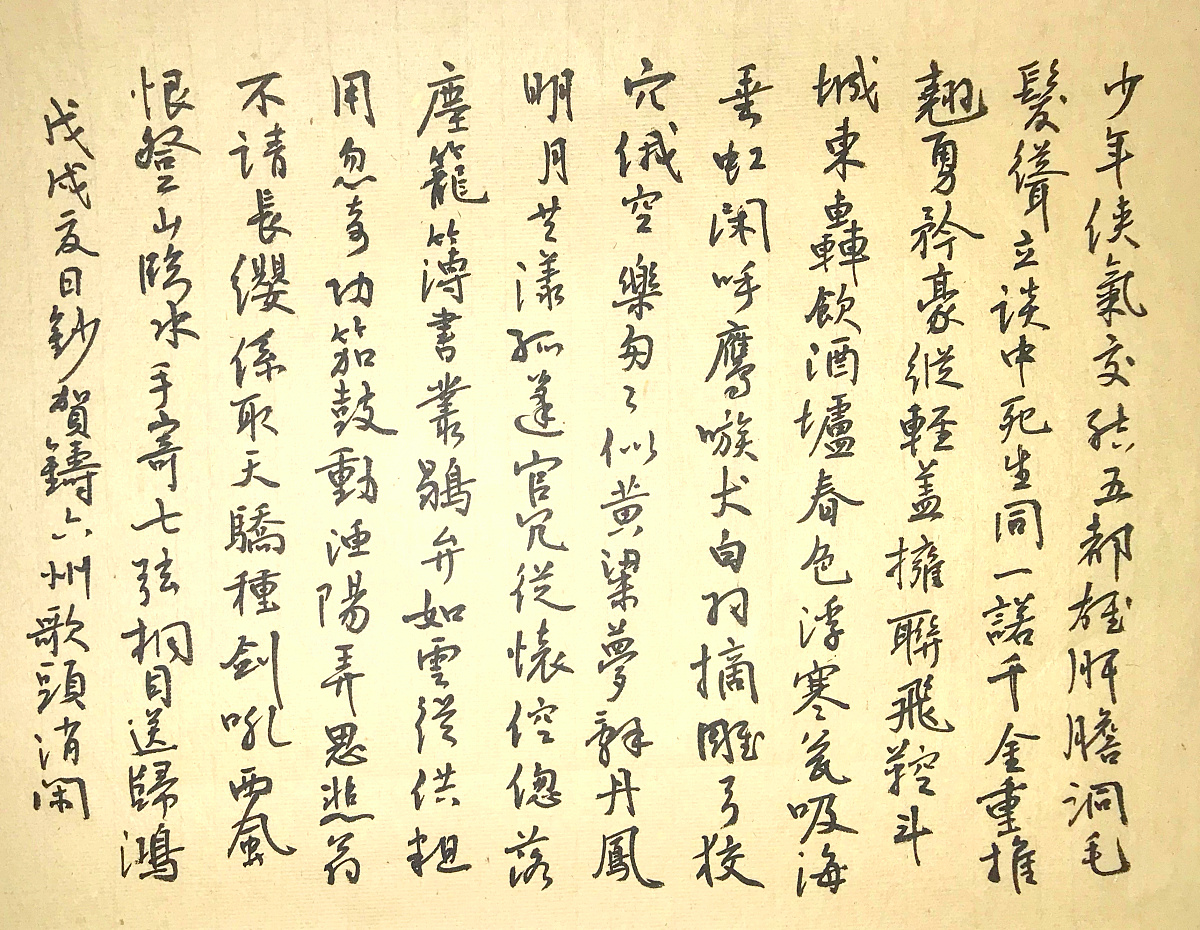 少年俠氣交結五都雄肝膽洞毛
髮聳立談中死生同一諾千金重推
翹勇矜豪縱輕蓋擁聯飛鞚斗
城東轟飲酒壚春色浮寒瓮吸海
垂虹閑呼鷹嗾犬白羽摘雕弓狡
穴俄空樂匆々似黃粱夢辭丹鳳
明月共漾孤蓬官冗從懷倥傯落
塵籠簿書叢鶡弁如雲眾供粗
用忽奇功笳鼓動漁陽弄思悲翁
不請長纓係取天驕種劍吼西風
恨登山臨水手寄七弦桐目送歸鴻
戊戌夏日鈔賀鑄六州歌頭消閑